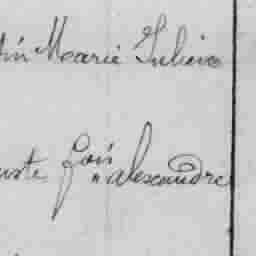 tin Marie Julien
uste fois alexandre